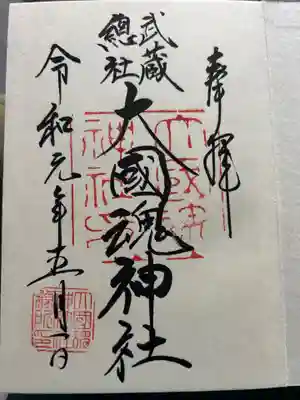 奉拝
武蔵
總社
大國魂神社
令和元年五月一日